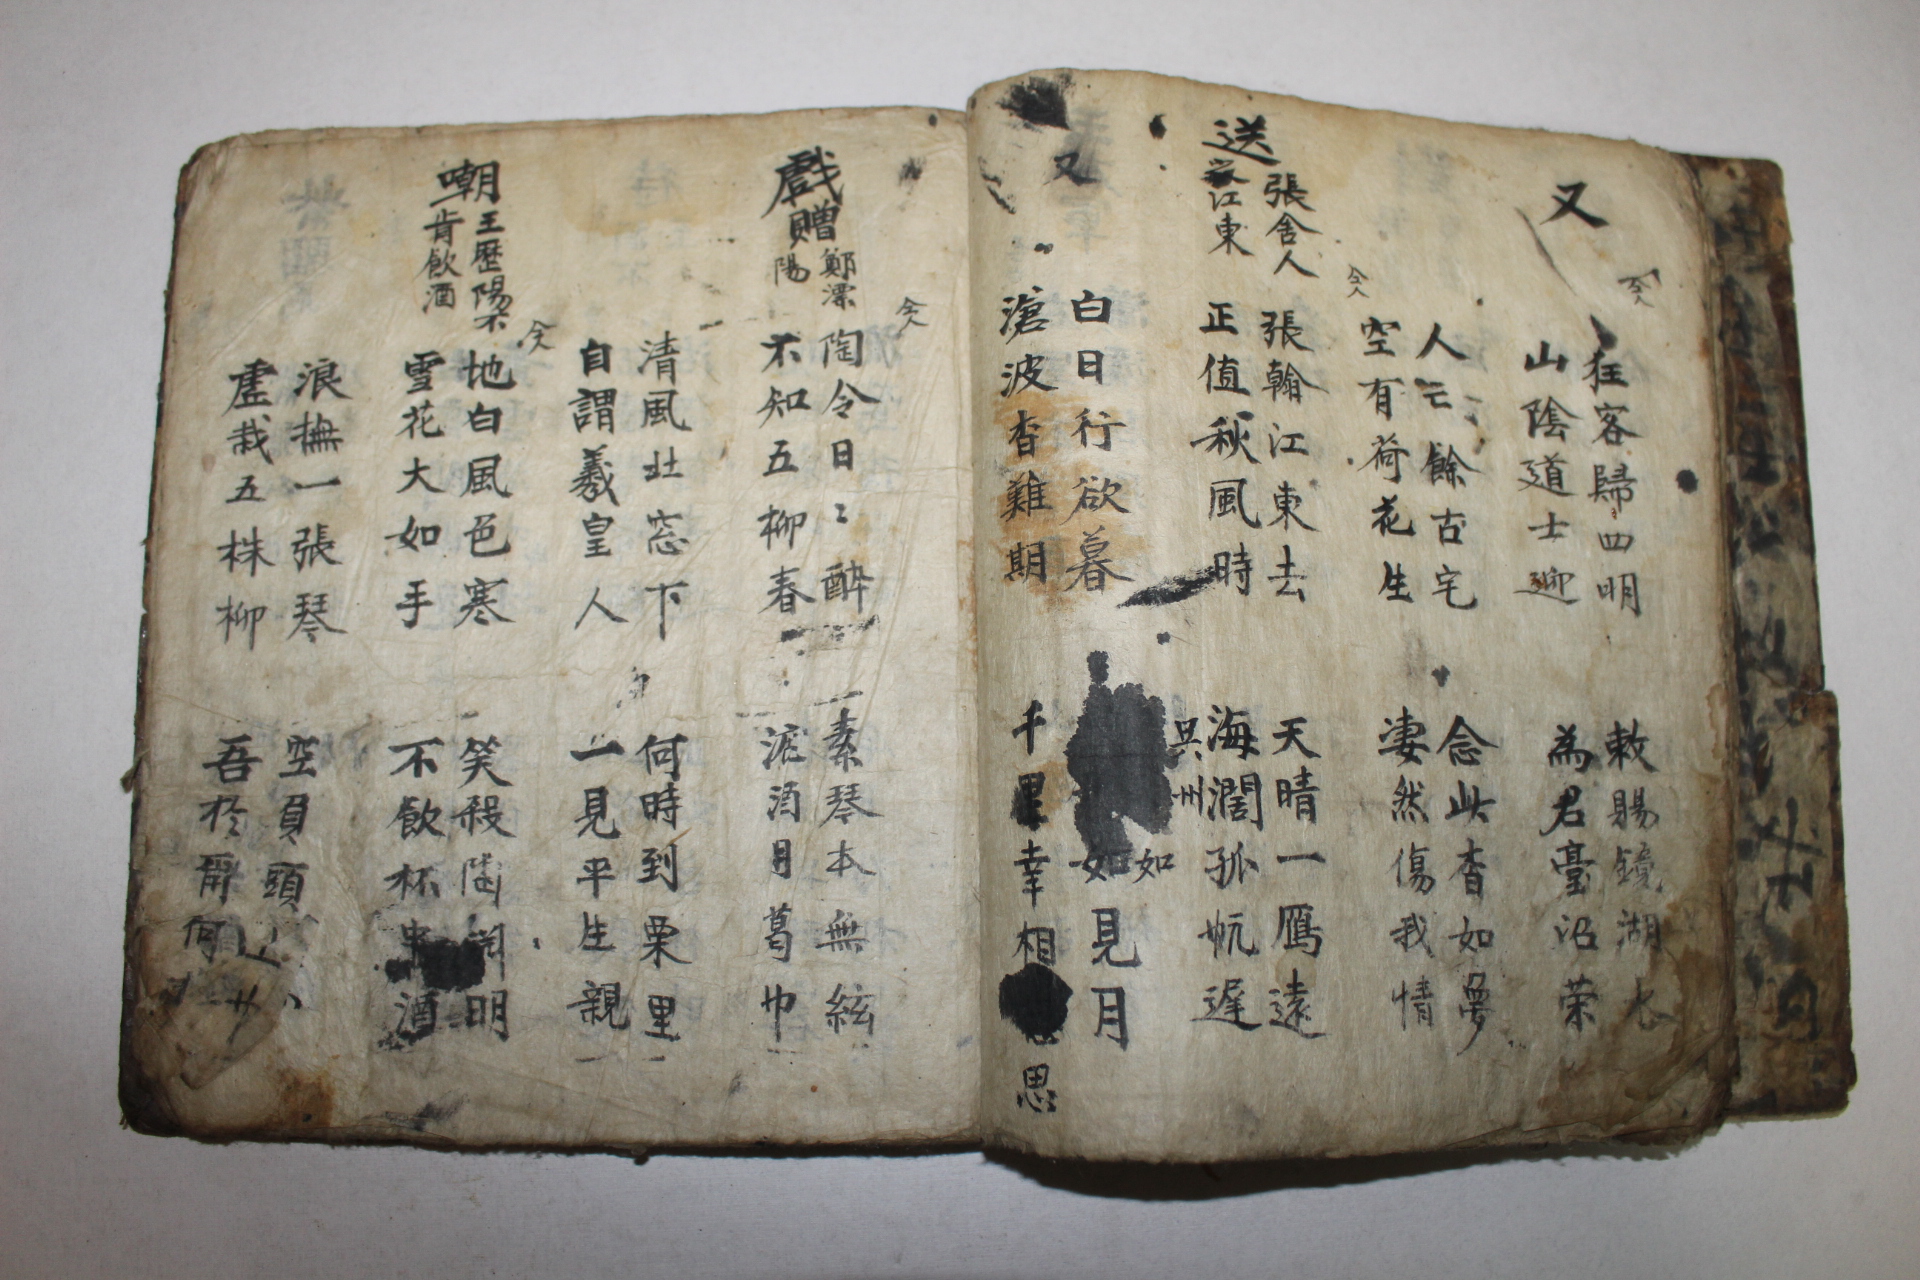 又
狂客歸四明
山陰道士迎
敕賜鏡湖水
為君臺沼荣
人亡餘古宅
空有荷花生
念此杳如夢
凄然傷我情
送張舍人
之江東
張翰江東去
正值秋風時
天晴一鴈遠
海濶孤帆遲
又
白日行欲暮
滄波杳難期
吳州如見月
千里幸相思
戲贈鄭溧
陽
陶令日〻醉
不知五柳春
素琴本無絃
漉酒用葛巾
清風北窓下
自謂羲皇人
何時到栗里
一見平生親
嘲王歷陽不
肯飲酒
地白風色寒
雪花大如手
笑殺陶淵明
不飲杯中酒
浪撫一張琴
虛栽五株柳
空負頭上
吾於爾何